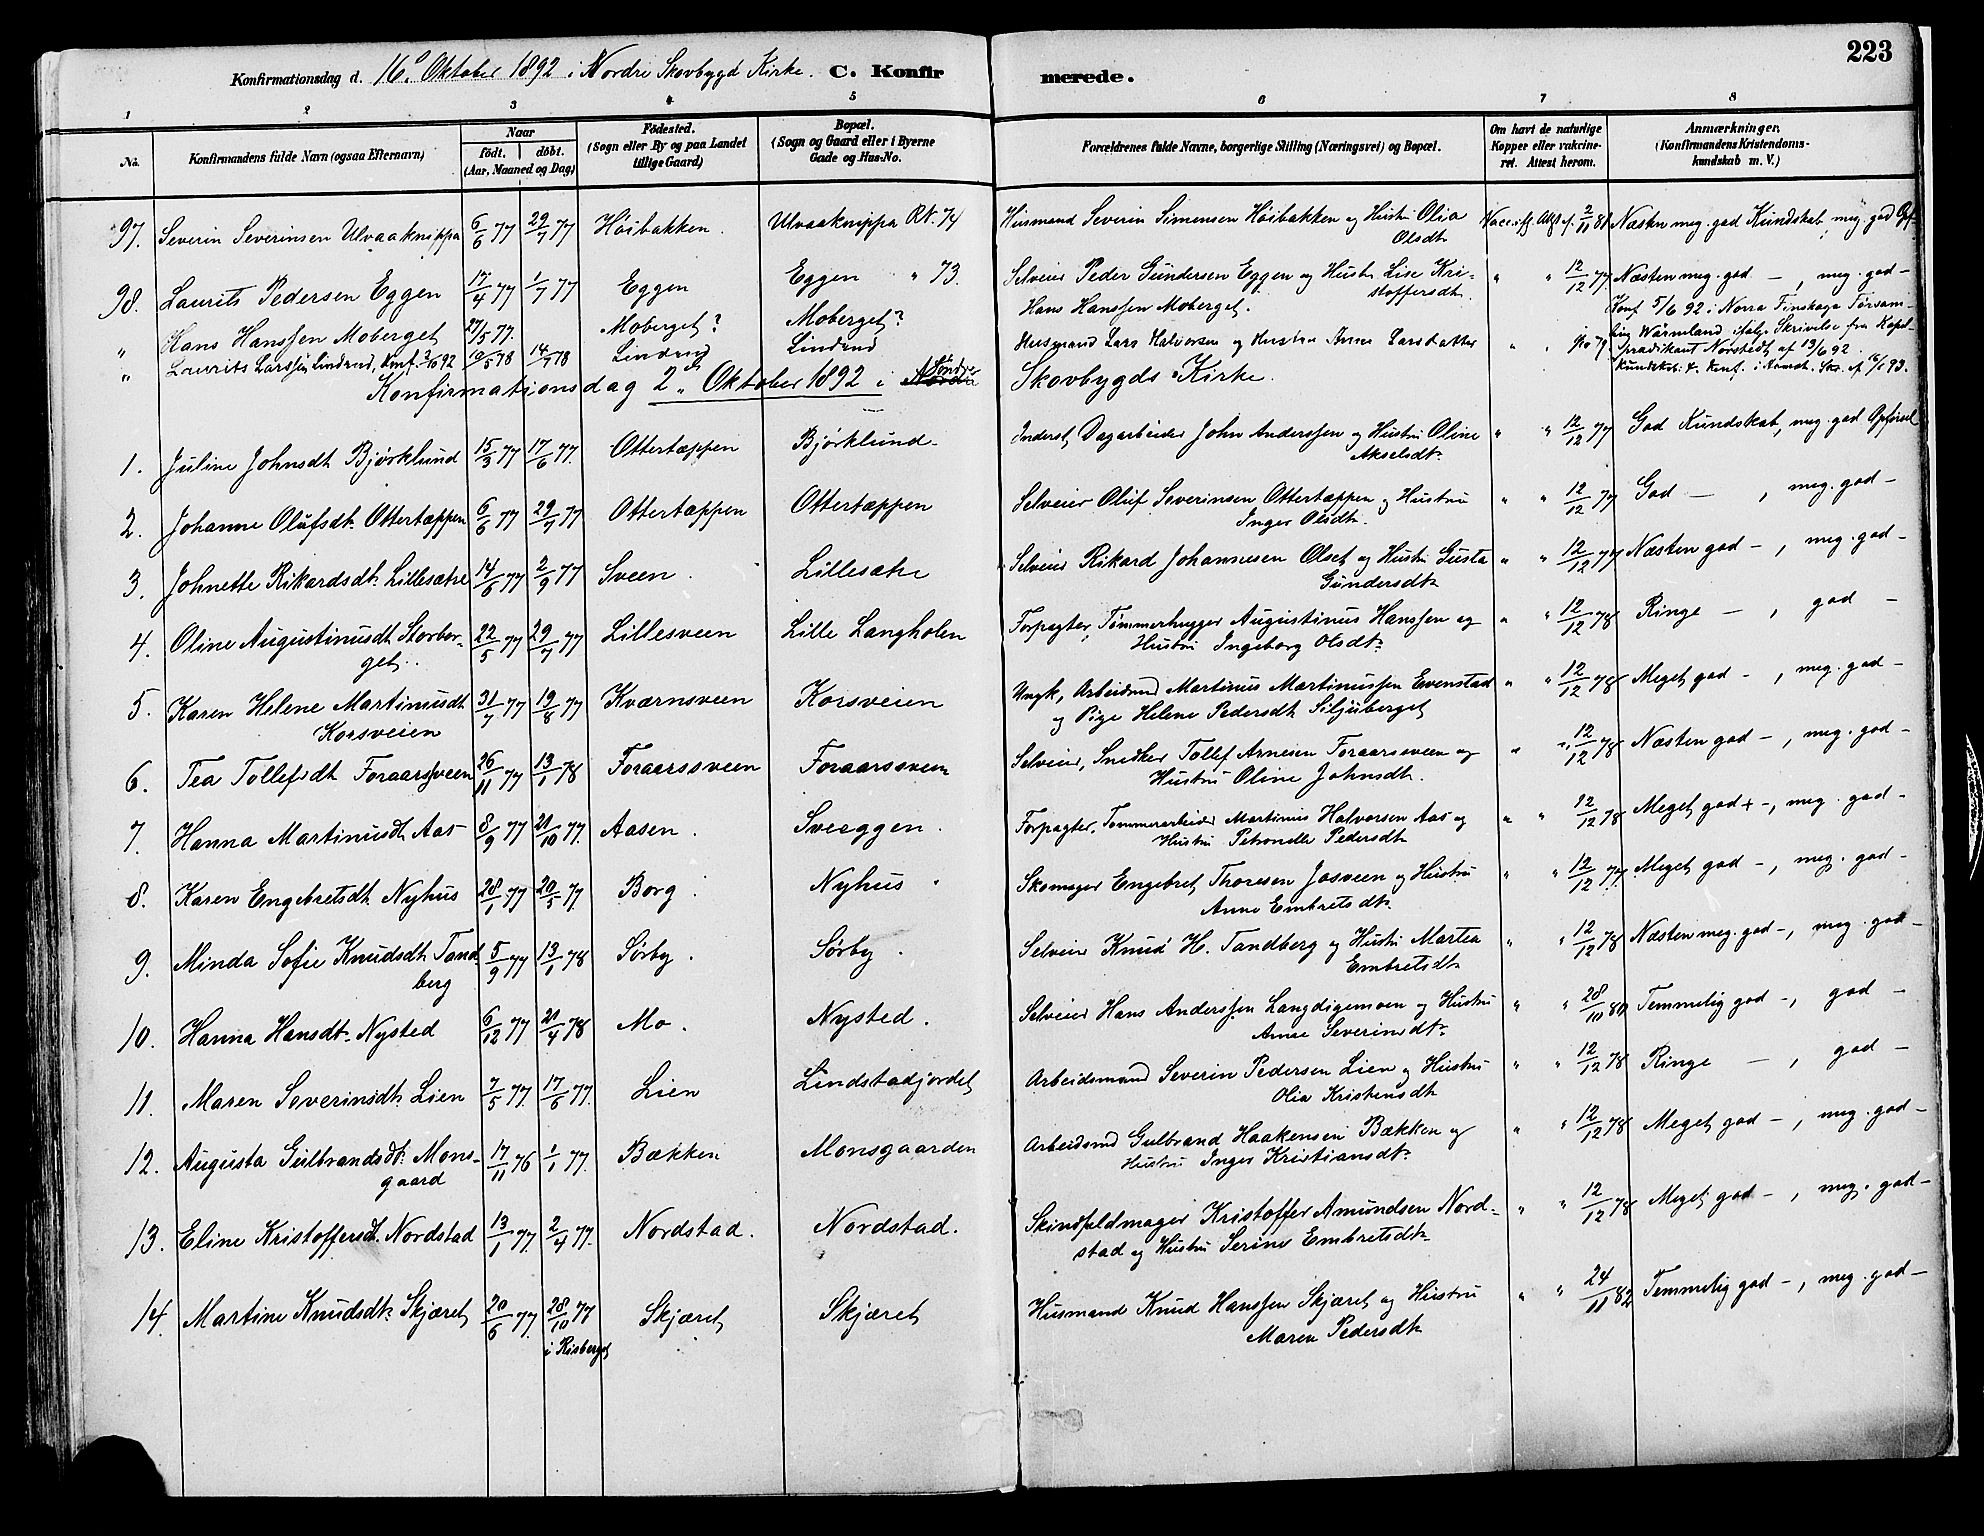 223
Konfirmationsdag d. 16de Oktober 1892 i Nordre Skovbygd Kirke. C. Konfirmerede.
1 2 3 4 5 6 7 8
No. Konfirmandens fulde Navn (ogsaa Efternavn) Naar födt. döbt. (Aar, Maaned og Dag) Födested. (Sogn eller By og paa Landet tillige Gaard) Bopæl. (Sogn og Gaard eller i Byerne Gade og Hus-No. Forældrenes fulde Navne, borgerlige Stilling (Næringsvei) og Bopæl. Om havt de naturlige Kopper eller vakcineret. Attest herom. Anmærkninger. (Konfirmandens Kristendomskundskab m. V.)
97. Severin Severinsen Ulvaaknippa 6/6 77 29/7 77 Höibakken. Ulvaaknippa Rk. 74 Husmand Severin Simensen Höibakken og Hustru Olia Olsdt. 2/11 81 Næsten meg. god Kundskab, meg. god Opf.
98. Laurits Pedersen Eggen 17/4 77 1/7 77 Eggen Eggen " 73. Selveier Peder Gundersen Eggen og Hustru Lise Kristoffersdt. " " 12/12 77 Næsten meg. god –, meg. god –
" Hans Hanssen Moberget 27/5 77. Moberget? Moberget? Hans Hanssen Moberget. Konf. 5/6 92 i Norra Finskoga Församling Wärmland ifølge Skrivelse fra Kapelpradikant Norstedt af 13/6 92.
" Laurits Larssen Lindrud, Konf. 2/10 92 19/5 78 14/7 78 Lindrud Lindrud Husmand Lars Halvorsen og Hustru Anne Larsdatter
Konfirmationsdag 2den Oktober 1892 i Söndre Skovbygds Kirke.
1. Juline Johnsdt Bjørklund 15/3 77 17/6 77. Ottertæppen Bjørklund. Inderst, Dagarbeider John Anderssen og Hustru Oline Akselsdt. " " 12/12 77 God Kundskab, meg. god Opförsel
2. Johanne Olufsdt. Ottertæppen 6/6 77 29/7 77 Ottertæppen Ottertæppen Selveier Oluf Severinsen Ottertæppen og Hustru Inger Olsdt. " " 12/12 77 God –, meg. god –
3. Johnette Rikardsdt. Lillesætre 14/6 77 2/9 77 Sveen. Lillesætre Selveier Rikard Johannesen Olset og Hustru Gusta Gundersdt. " " 12/12 77 Næsten god –, meg. god –
4. Oline Augustinusdt Storberget. 22/5 77 29/7 77 Lillesveen Lille Langholen Forpagter, Tömmerhugger Augustinus Hanssen og Hustru Ingeborg Olsdt. " " 12/12 78 Ringe –, god –
5. Karen Helene Martinusdt Korsveien 31/7 77 19/8 77 Kværnsveen Korsveien Ungk, Arbeidsmd Martinus Martinussen Evenstad og Pige Helene Pedersdt Siljuberget " " 12/12 78 Meget god –, meg. god –
6. Tea Tollefsdt Foraarssveen 26/11 77 13/1 78 Foraarssveen Foraarssveen Selveier, Snedker Tollef Arnesen Foraarssveen og Hustru Oline Johnsdt. " " 12/12 78 Næsten god –, meg. god –
7. Hanna Martinusdt Aas 8/9 77 21/10 77. Aasen. Sveæggen. Forpagter, Tömmerarbeider Martinus Halvorsen Aas og Hustru Petronelle Pedersdt " " 12/12 78 Meget god + –, meg. god –
8. Karen Engebretsdt. Nyhus 28/1 77 20/5 77 Borg. Nyhus Skomager Engebret Thoresen Josveen og Hustru Anne Embretsdt. " " 12/12 77. Meget god –, meg. god –
9. Minda Sofie Knudsdt Tandberg 5/9 77 13/1 78 Sörby. Sörby. Selveier Knud H. Tandberg og Hustru Martea Embretsdt " " 12/12 78 Næsten meg. god –, meg. god –
10. Hanna Hansdt. Nysted 6/12 77 21/4 78 Mo. Nysted. Selveier Hans Anderssen Langdigemoen og Hustru Anne Severinsdt. " " 28/10 80 Temmelig god –, god –
11. Maren Severinsdt. Lien 7/5 77. 17/6 77. Lien Lindstadjordet Arbeidsmand Severin Pedersen Lien og Hustru Olia Kristensdt. " " 12/12 78 Ringe –, god –
12. Augusta Gulbrandsdt. Monsgaard 17/11 76 1/1 77. Bækken Monsgaarden Arbeidsmd Gulbrand Haakensen Bækken og Hustru Inger Kristiansdt. " " 12/12 78 Meget god –, meg. god –
13. Eline Kristoffersdt. Nordstad 13/1 77. 2/4 77. Nordstad. Nordstad. Skindfeldmager Kristoffer Amundsen Nordstad og Hustru Serine Embretsdt. " " 12/12 78 Meget god –, meg. god –
14. Martine Knudsdt. Skjæret 20/6 77. 28/10 77 i Risberget Skjæret Skjæret Husmand Knud Hanssen Skjæret og Hustru Maren Pedersdt. " " 24/11 82 Temmelig god –, meg. god –